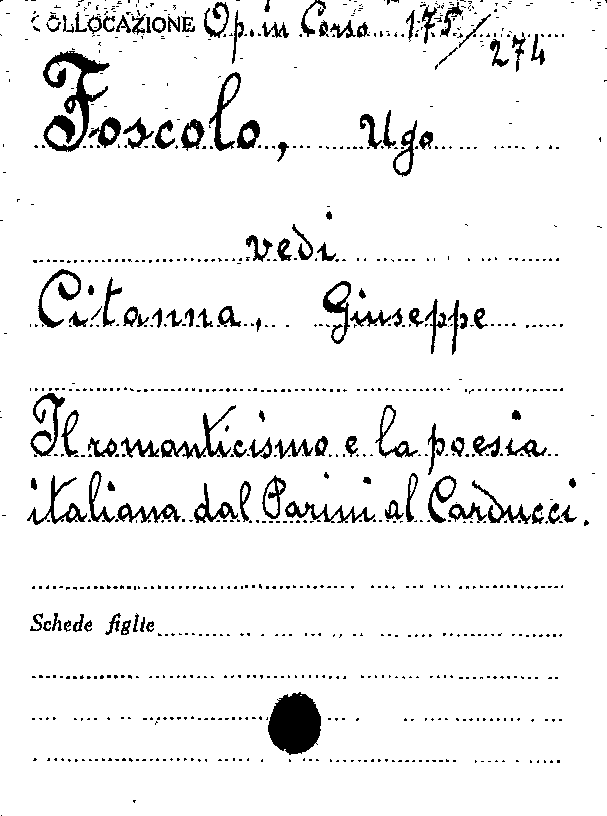 COLLOCAZIONE Op. in Corso 175/274
Foscolo, Ugo
vedi
Citanna, Giuseppe
Il romanticismo e la poesia
italiana dal Parini al Carducci.
Schede figlie